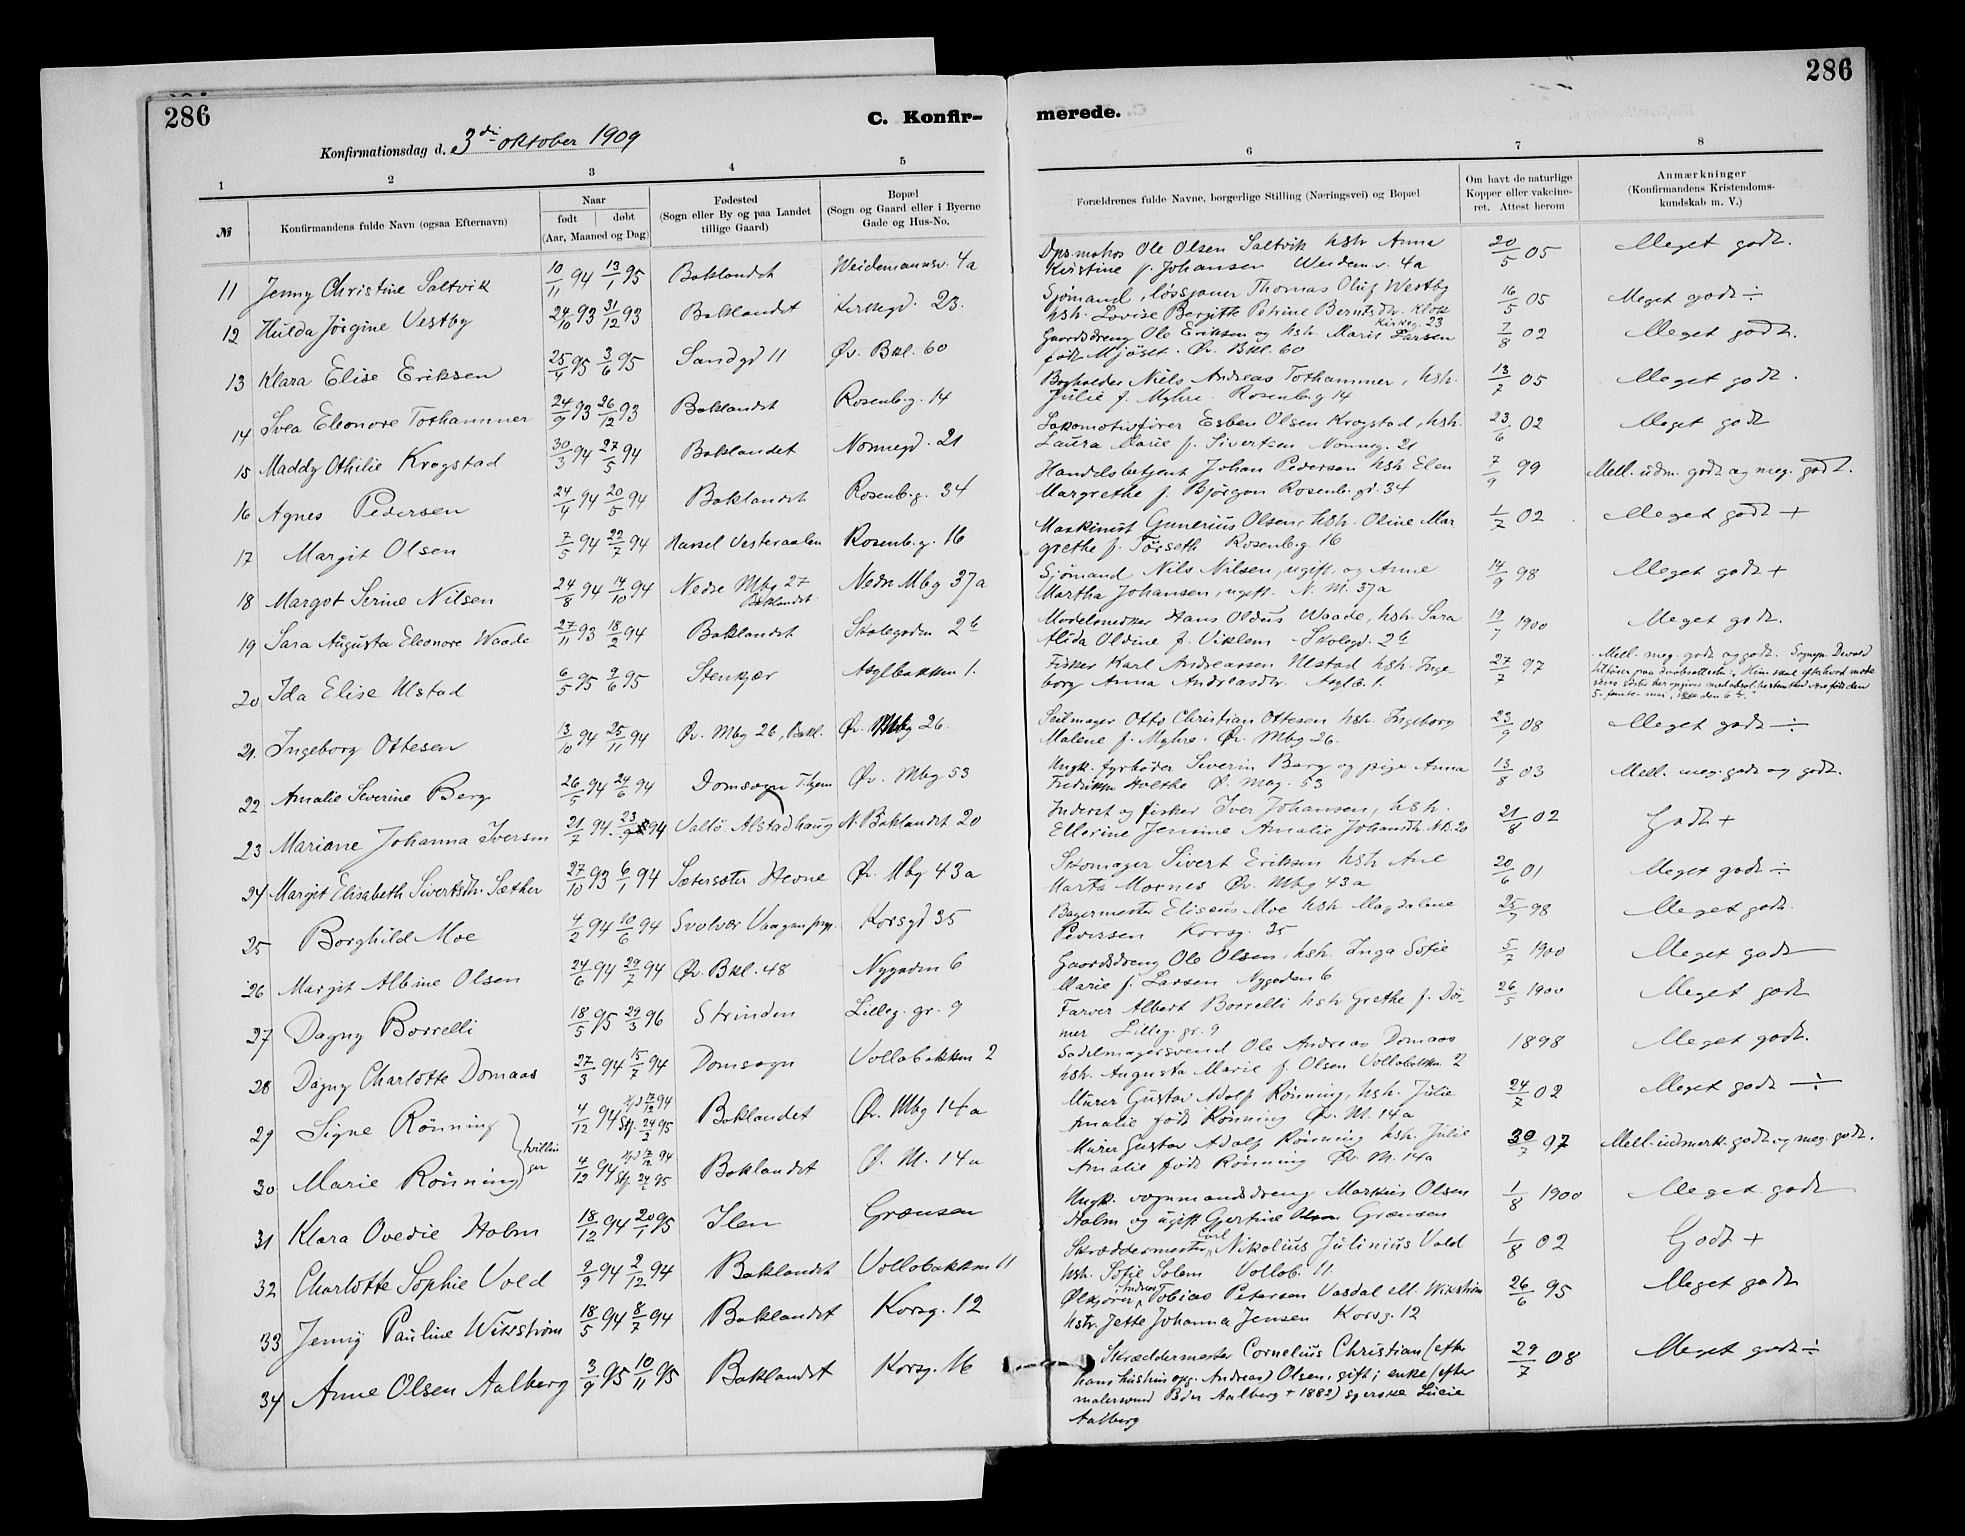 286
C. Konfir-
Konfirmationsdag d. 3die oktober 1909
1 2 3 4 5
№ Konfirmandens fulde Navn (ogsaa Efternavn) Naar født døbt (Aar, Maaned og Dag) Fødested (Sogn eller By og paa Landet tillige Gaard) Bopæl (Sogn og Gaard eller i Byerne Gade og Hus-No.
11 Jenny Christine Saltvik 10/11 94 13/1 95 Baklandet Weidemannsv. 4a
12 Hulda Jørgine Vestby 24/10 93 31/12 93 Baklandet Kirkegd. 23.
13 Klara Elise Eriksen 25/4 95 3/6 95 Sandgd 11 Øv. Bkl. 60
14 Svea Eleonore Tothammer 24/9 93 26/12 93 Baklandet Rosenb.g. 14
15 Maddy Othilie Krogstad 30/3 94 27/5 94 Baklandet Nonnegd. 21
16 Agnes Pedersen 24/4 94 20/5 94 Baklandet Rosenb.g. 34
17 Margit Olsen 7/5 94 22/7 94 Hassel Vesteraalen Rosenb.g. 16
18 Margot Serine Nilsen 24/8 94 14/10 94 Nedre Mbg 27 Baklandet Nedre Mbg 37a
19 Sara Augusta Eleonore Waade 27/11 93 18/2 94 Baklandet Skolegaden 2b
20 Ida Elise Ulstad 6/5 95 9/6 95 Stenkjær Asylbakken 1.
21. Ingeborg Ottesen 13/10 94 25/11 94 Øv. Mbg 26, Bakl. Øv. Mbg 26.
22 Amalie Severine Berg 26/5 94 24/6 94 Domsogn T.hjem Øv. Mbg 53
23 Mariane Johanna Iversen 21/7 94. 23/9 94 Vallö Alstadhaug N. Baklandet 20
24 Margit Elisabeth Sivertsdtr. Sæther 27/10 93 6/1 94 Sætersæter Hevne Øv. Mbg 43a
25 Borghild Moe 4/2 94 10/6 94 Svolvær Vaagan Korsgd 35
26 Margit Albine Olsen 24/6 94 29/7 94 Øv. Bkl. 48 Nygaden 6
27 Dagny Borrelli 18/5 95 29/3 96 Strinden Lilleg. gr. 9
28 Dagny Charlotte Domaas 27/3 94 15/7 94 Domsogn Vollabakken 2
29 Signe Rönning 4/12 94 17/12 94 24/2 95 Baklandet Øv. Mbg 14a
tvillinger
30 Marie Rönning 4/12 94 17/12 94 24/2 95 Baklandet Ø. M. 14a
31 Klara Ovedie Holm 18/12 94 20/1 95 Ilen Grænsen
32 Charlotte Sophie Vold 9/9 94 2/12 94 Baklandet Vollabakken 11
33 Jenny Pauline Wikström 18/5 94 8/7 94 Baklandet Korsg. 12
34 Anne Olsen Aalberg 3/9 95 10/11 95 Baklandet Korsg. 16
286
merede.
6 7 8
Forældrenes fulde Navne, borgerlige Stilling (Næringsvei) og Bopæl Om havt de naturlige Kopper eller vakcineret. Attest herom Anmærkninger (Konfirmandens Kristendomskundskab m. V.)
Dps.matros Ole Olsen Saltvik hstr Anna 20/5 05 Meget godt.
Kristine f. Johansen Weidem.v. 4a
Sjømand, løssjauer Thomas Oluf Westby 16/5 05 Meget godt ÷
hstr. Lovise Bergitte Petrine Berntsdtr. Klok Kirkeg. 23
Gaardsdreng Ole Eriksen og hstr. Marit Larsen 7/8 02 Meget godt.
født Mjöset. Øv. Bkl. 60
Bogholder Niels Andreas Tothammer, hstr. 13/7 05 Meget godt.
Julie f. Myhre. Rosenb.g 14
Lokomotivfører Esben Olsen Krogstad, hstr. 23/6 02 Meget godt
Laura Marie f. Sivertsen, Nonneg. 21
Handelsbetjent Johan Pedersen hstr Elen 7/9 99 Mell. udm. godt og meg. godt.
Margrethe f. Björgan Rosenb. gd. 34
Maskinist Gunerius Olsen, hstr. Oline Mar 1/7 02 Meget godt +
grethe f. Törseth Rosenb.g. 16
Sjømand Nils Nilsen, ugift, og Anne 14/9 98 Meget godt +
Martha Johansen, ugift. N. M. 37a
Modelsnedker Hans Oldus Waade, hstr. Sara 19/7 1900 Meget godt.
Alida Oldine f. Viklem - Skolegd. 2b
Fisker Karl Andreassen Ulstad hstr. Inge- 27/7 97 Mell. meg. godt og godt.
borg Anna Andreasdtr. Asylb. 1.
Seilmager Otto Christian Ottesen hstr. Ingeborg 23/9 08 Meget godt ÷
Malene f. Myhre. Øv. Mbg 26.
Ungk. fyrbøder Severin Berg og pige Anna 13/8 03 Mell. meg. godt og godt.
Fredrikke Holthe Ø. Mbg. 53
Inderst og fisker Iver Johansen, hstr. 21/8 02 Godt +
Ellerine Jensine Amalie Johansdtr. N.B. 20
Skomager Sivert Eriksen hstr Ane 20/6 01 Meget godt ÷
Marta Moenes Øv. Mbg 43a
Bagermester Eliseus Moe hstr Magdalene 98 Meget godt.
Pedersen Korsg. 35
Gaardsdreng Ole Olsen, hstr. Inga Sofie 5/7 1900 Meget godt
Marie f. Larsen Nygaden 6
Farver Albert Borrelli hstr Grethe f. Dör- 26/5 1900 Meget godt
mer Lilleg. gr. 9
Sadelmagersvend Ole Andreas Domaas 1898 Meget godt.
hstr. Augusta Marie f. Olsen Vollabakken 2
Murer Gustav Adolf Rönning, hstr. Julie 24/7 02 Meget godt ÷
Amalie født Rönning Øv. M. 14a
Murer Gustav Adolf Rönning hstr. Julie 30/7 97 Mell. udmerk. godt og meg. godt.
Amalie født Rönning Øv. M. 14a
Ungk. vognmandsdreng Markus Olsen 1/8 1900 Meget godt
Holm og ugift Gjertine Olsen Grænsen
Skræddermester Carl Nikolius Julinius Vold 1/8 02 Godt +
hstr. Sofie Solem Vollab. 11
Ølkjører Andreas Tobias Petersen Vasdal ell. Wikström 26/6 95 Meget godt
hstr. Jette Johanna Jensen Korsg. 12
Skræddermester Cornelius Christian (efter 29/7 08 Meget godt ÷
hans hustrus opg. Andreas) Olsen, gift; enke (efter
malersvend Peder Aalberg + 1882) syerske Lucie
Aalberg